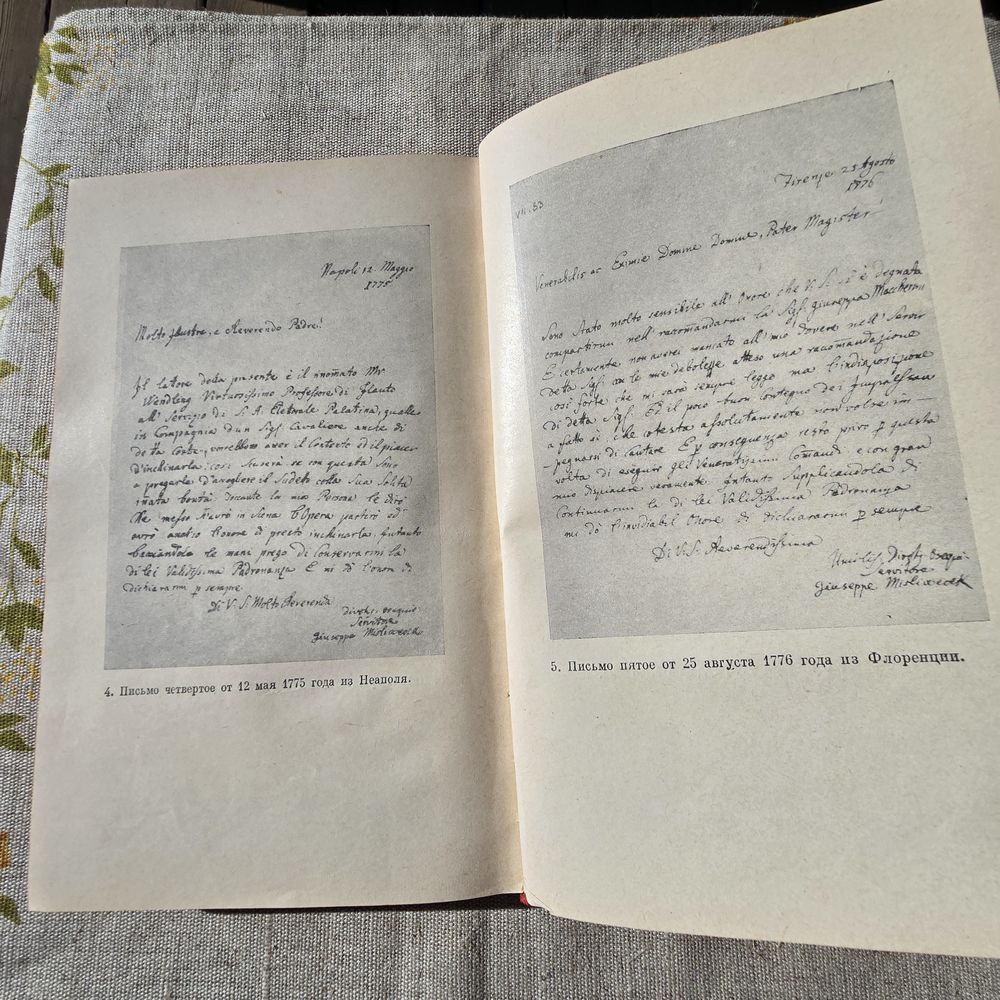 Napoli 12. Maggio
1775
Molto Illustre, e Reverendo Padre!
Il latore della presente è il rinomato Mr
Wendling Virtuosissimo Professore di Flauto
all' Servizio di S. A. Elettorale Palatina, quale
in Compagnia d'un Sigr Cavaliere anche di
detta Corte, vorebbom aver il Contento ed il piacer
d'inclinarla; così
a pregarla d'acogliere il sudeto colla Sua Solita
innata bontà. Toccante la mia Persona le dirò
Che messo d'avrò in Siena l'Opera partirò ed
avrò anch'io l'onore di presto inchinarla, frattanto
bacciandole le mani prego di Conservarmi la
di lei Validissima Padronanza E mi dò l'onore di
dichiararmi p sempre
Di V. S. Molto Reverenda
Servitore
Giuseppe Misliwecek
4. Письмо четвертое от 12 мая 1775 года из Неаполя.
VII.83
Firenze 25 Agosto
1776
Venerabilis ac Eximie Domine Domine, Pater Magister!
Sono Stato molto sensibile all' Onore, che V. S. è degnata
compartirmi nell' racomandarmi la Sigf. Giuseppa Maccherini
E certamente non averei mancato all' mio dovere nell' Servir
detta Sigf. con le mie debolezze, atteso una racomandazione
così forte che mi sarà sempre legge ma l'indisposizione
di detta Sigf. Ed il poco buon Contegno dei Impresari
a fatto si, che cotesta assolutamente non volse im-
pegnarsi di Cantare E p conseguenza resto privo p questa
volta di eseguire gli Veneratissimi Comandi e con gran
mio dispiacere veramente, intanto Supplicandola di
Continuarmi la di lei Validissima Padronanza
mi dò l'invidiabil Onore di dichiararmi p sempre
Di V. S. Reverendissima
Servitore
Giuseppe Misliwecek
5. Письмо пятое от 25 августа 1776 года из Флоренции.